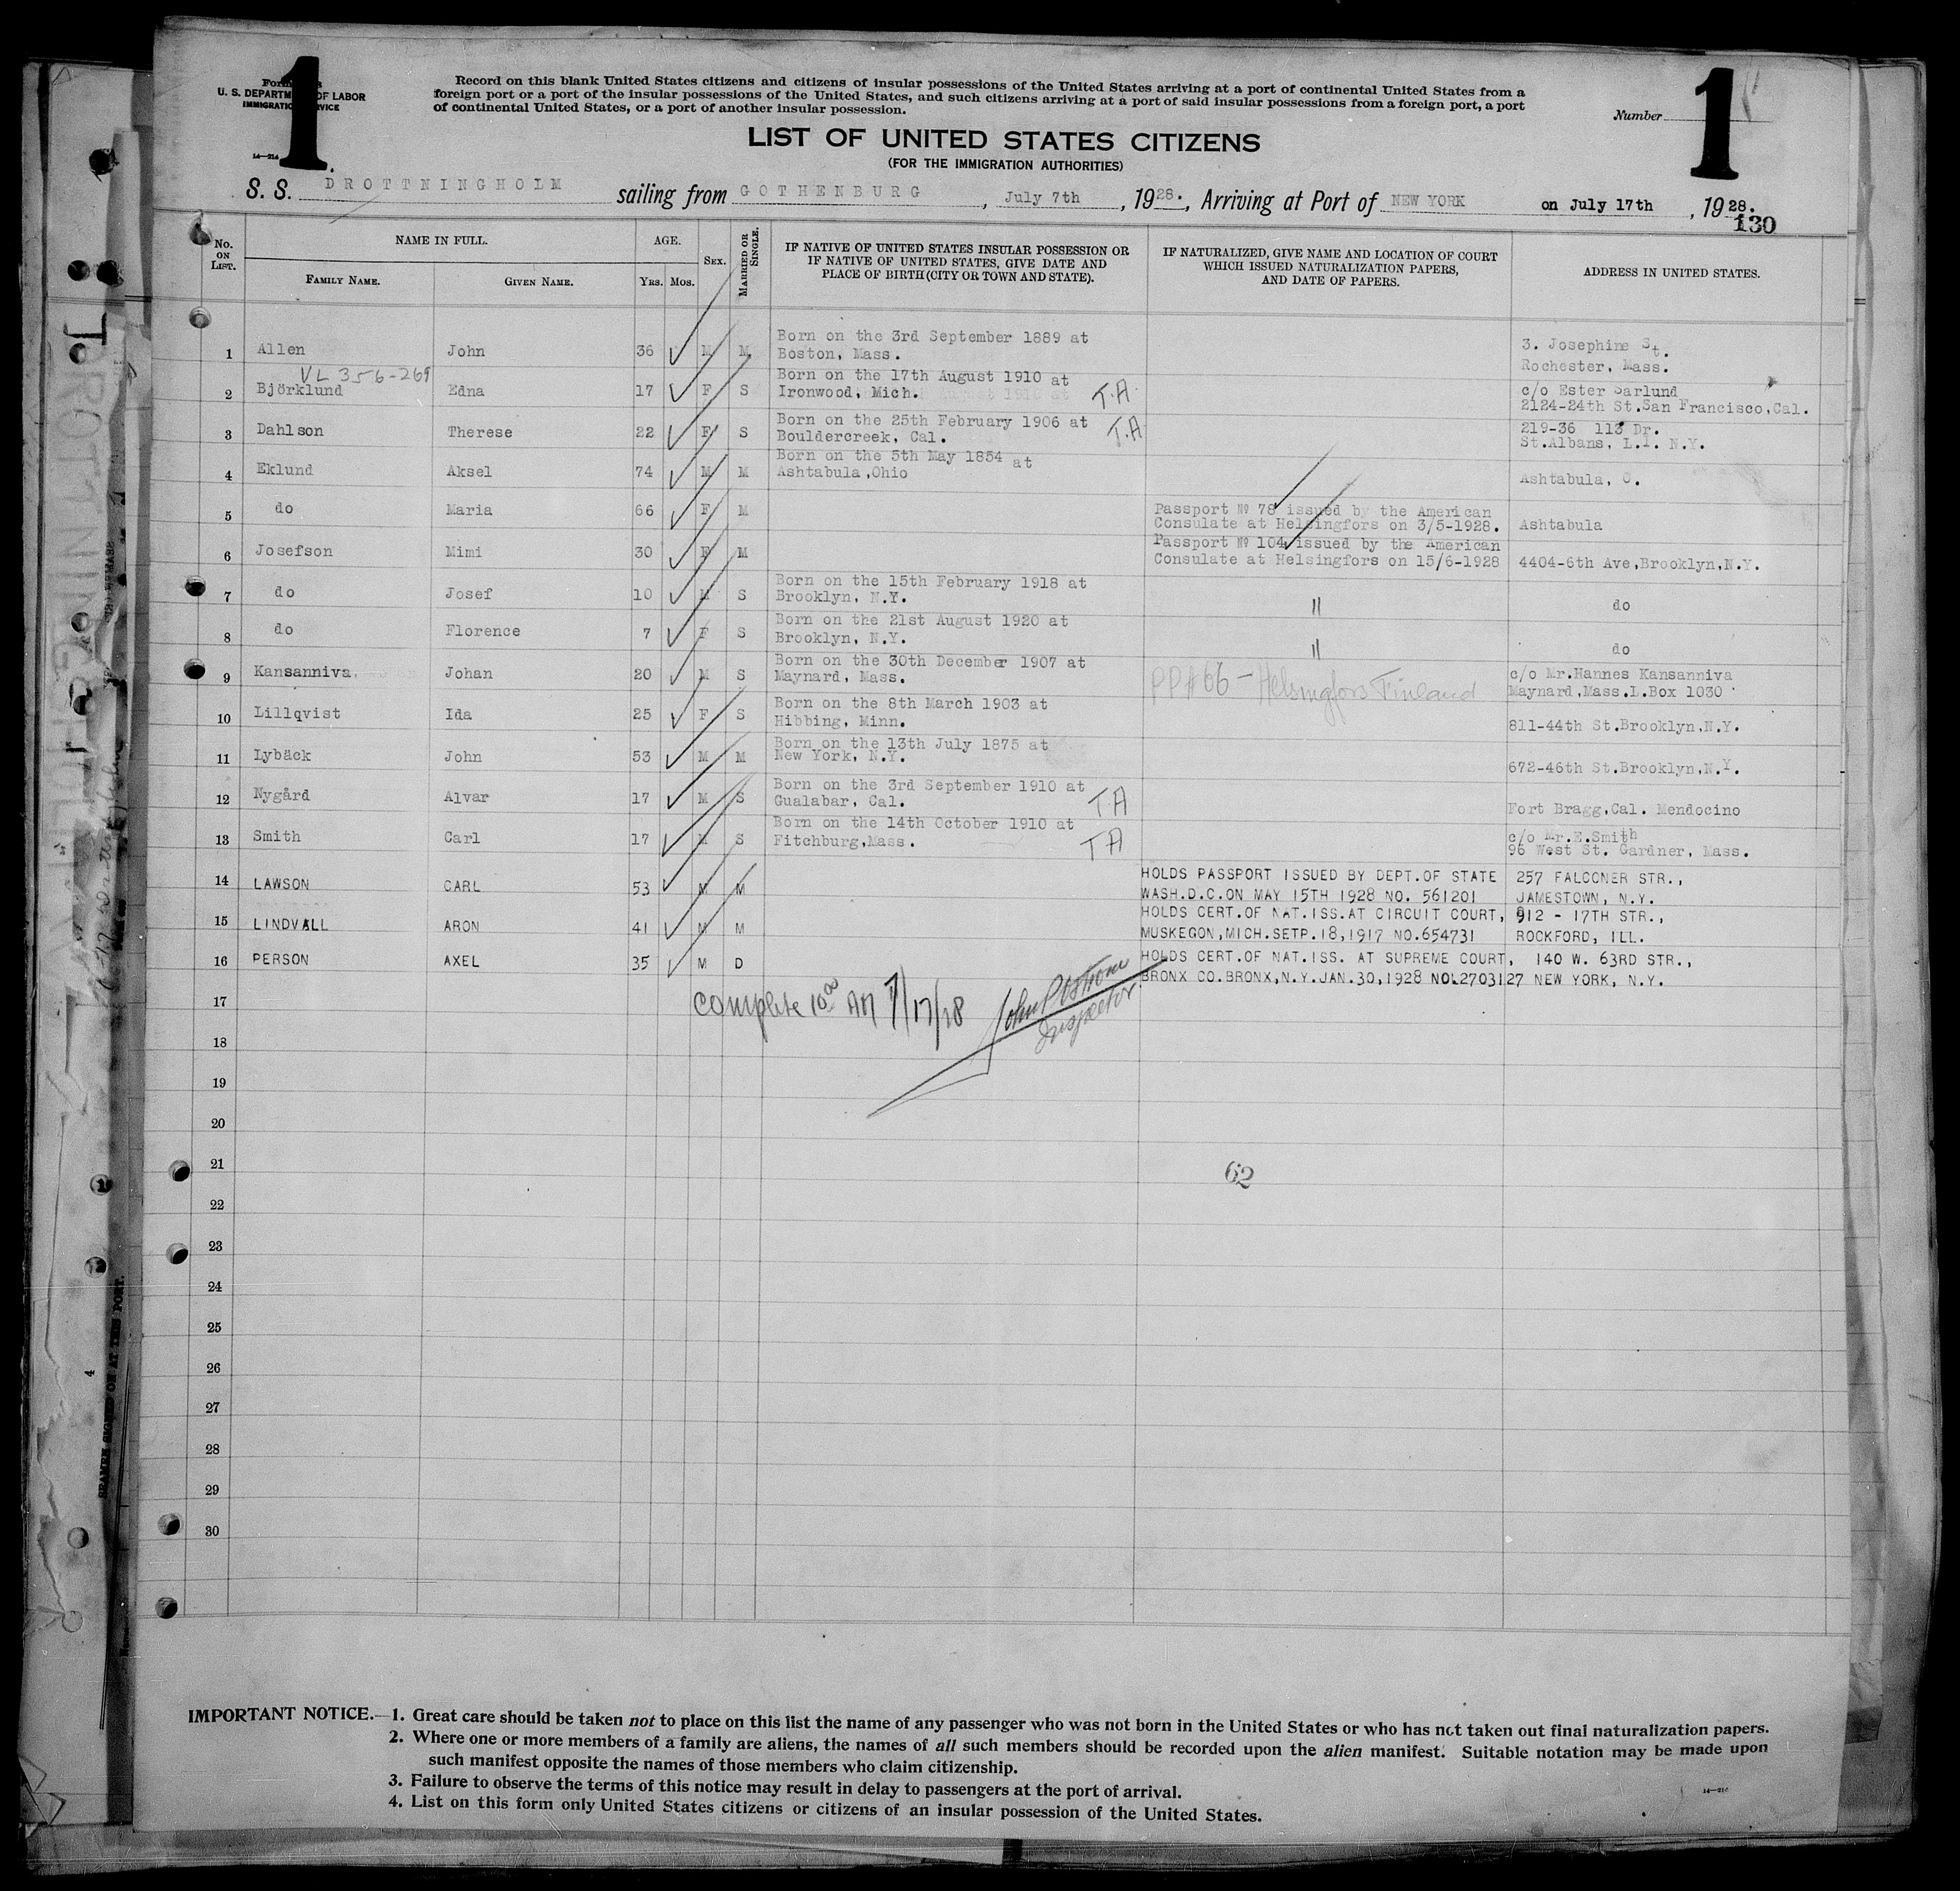 1
1
U. S. DEPARTM OF LABOR
IMMIGRATIO RVICE
14—214
Record on this blank United States citizens and citizens of insular possessions of the United States arriving at a port of continental United States from a
foreign port or a port of the insular possessions of the United States, and such citizens arriving at a port of said insular possessions from a foreign port, a port
of continental United States, or a port of another insular possession.
Number
LIST OF UNITED STATES CITIZENS
(FOR THE IMMIGRATION AUTHORITIES)
S. S. DROTTNINGHOLM sailing from GOTHENBURG, July 7th, 1928., Arriving at Port of NEW YORK on July 17th, 1928.
130
No. ON LIST. NAME IN FULL. AGE. SEX. MARRIED OR SINGLE. IF NATIVE OF UNITED STATES INSULAR POSSESSION OR IF NATIVE OF UNITED STATES, GIVE DATE AND PLACE OF BIRTH (CITY OR TOWN AND STATE). IF NATURALIZED, GIVE NAME AND LOCATION OF COURT WHICH ISSUED NATURALIZATION PAPERS, AND DATE OF PAPERS. ADDRESS IN UNITED STATES.
FAMILY NAME. GIVEN NAME. YRS. MOS.
1 Allen John 36 M M Born on the 3rd September 1889 at Boston, Mass. 3. Josephine St. Rochester, Mass.
VL 356-269
2 Björklund Edna 17 F S Born on the 17th August 1910 at Ironwood, Mich. T.A. c/o Ester Sarlund 2124-24th St.San Francisco,Cal.
3 Dahlson Therese 22 F S Born on the 25th February 1906 at Bouldercreek, Cal. T.A 219-36 113 Dr. St.Albans, L.I. N.Y.
4 Eklund Aksel 74 M M Born on the 5th May 1854 at Ashtabula,Ohio Ashtabula, O.
5 do Maria 66 F M Passport № 78 issued by the American Consulate at Helsingfors on 3/5-1928. Ashtabula
6 Josefson Mimi 30 F M Passport № 104 issued by the American Consulate at Helsingfors on 15/6-1928 4404-6th Ave,Brooklyn,N.Y.
7 do Josef 10 M S Born on the 15th February 1918 at Brooklyn, N.Y. " do
8 do Florence 7 F S Born on the 21st August 1920 at Brooklyn, N.Y. " do
9 Kansanniva Johan 20 M S Born on the 30th December 1907 at Maynard, Mass. PP#66 - Helsingfors Finland c/o Mr.Hannes Kansanniva Maynard,Mass.L.Box 1030
10 Lillqvist Ida 25 F S Born on the 8th March 1903 at Hibbing, Minn. 811-44th St.Brooklyn,N.Y.
11 Lybäck John 53 M M Born on the 13th July 1875 at New York, N.Y. 672-46th St.Brooklyn,N.Y.
12 Nygård Alvar 17 M S Born on the 3rd September 1910 at Gualabar, Cal. T.A Fort Bragg,Cal. Mendocino
13 Smith Carl 17 M S Born on the 14th October 1910 at Fitchburg,Mass. T A c/o Mr.E.Smith 96 West St. Gardner, Mass.
14 LAWSON CARL 53 M M HOLDS PASSPORT ISSUED BY DEPT.OF STATE WASH.D.C.ON MAY 15TH 1928 NO. 561201 257 FALCONER STR., JAMESTOWN, N.Y.
15 LINDVALL ARON 41 M M HOLDS CERT.OF NAT.ISS.AT CIRCUIT COURT, MUSKEGON,MICH.SETP.18,1917 NO.654731 912 - 17TH STR., ROCKFORD, ILL.
16 PERSON AXEL 35 M D HOLDS CERT.OF NAT.ISS. AT SUPREME COURT, BRONX CO.BRONX,N.Y.JAN.30,1928 NO.2703127 140 W. 63RD STR., NEW YORK, N.Y.
17 Complete 10.00 AM 7/17/28
Inspector
18
19
20
21
62
22
23
24
25
26
27
28
29
30
IMPORTANT NOTICE.—1. Great care should be taken not to place on this list the name of any passenger who was not born in the United States or who has not taken out final naturalization papers.
2. Where one or more members of a family are aliens, the names of all such members should be recorded upon the alien manifest. Suitable notation may be made upon
such manifest opposite the names of those members who claim citizenship.
3. Failure to observe the terms of this notice may result in delay to passengers at the port of arrival.
4. List on this form only United States citizens or citizens of an insular possession of the United States.